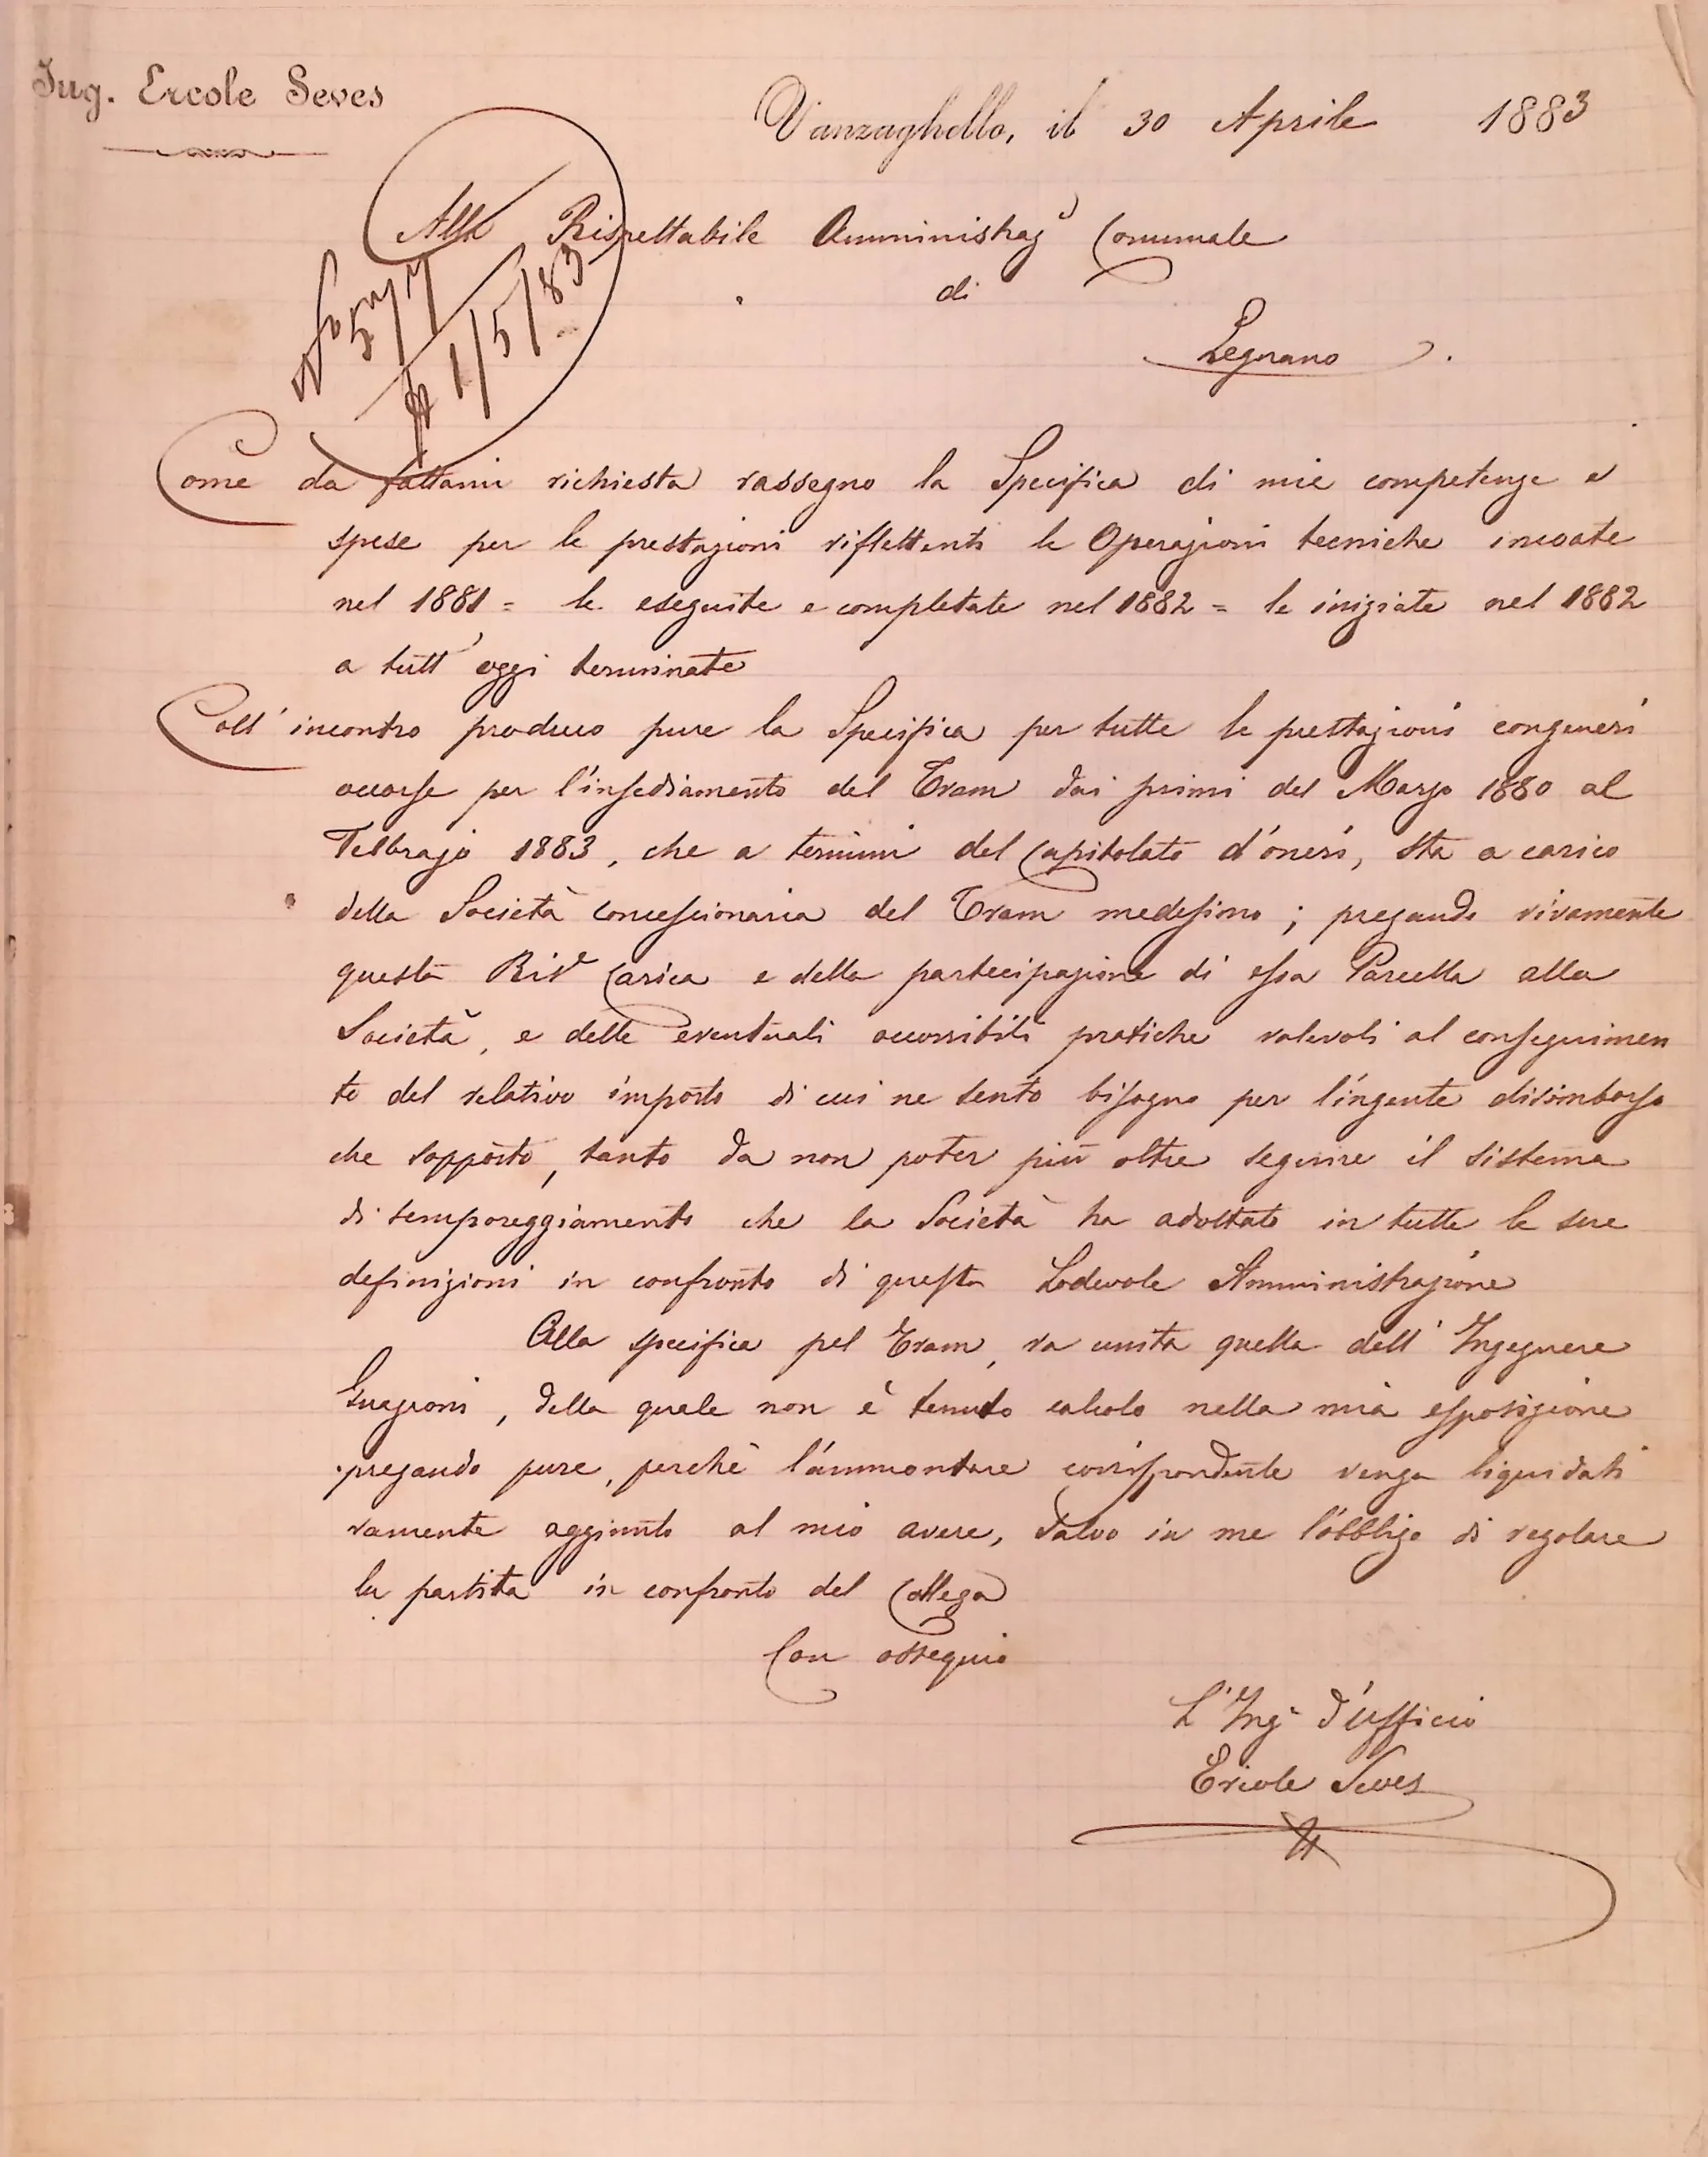 Ing. Ercole Seves
Vanzaghello, il 30 Aprile 1883
Alla Rispettabile Amministraze Comunale
di
Legnano.
1/5/83
Come da fattami richiesta rassegno la Specifica di mie competenze e
spese per le prestazioni riflettenti le Operazioni tecniche incoate
nel 1881 = le eseguite e completate nel 1882 = le iniziate nel 1882
a tutt'oggi terminate
Coll'incontro produco pure la Specifica per tutte le prestazioni congeneri
occorse per l'insediamento del Tram dai primi del Marzo 1880 al
Febbrajo 1883, che a termini del Capitolato d'oneri, sta a carico
della Società concessionaria del Tram medesimo; pregando vivamente
questa Rise Carica e della partecipazione di essa Parcella alla
Società, e delle eventuali occorribili pratiche valevoli al conseguimen
to del relativo importo di cui ne sento bisogno per l'ingente disimborso
che sopporto, tanto da non poter più oltre seguire il sistema
di temporeggiamento che la Società ha adottato in tutte le sue
definizioni in confronto di questa Lodevole Amministrazione
Alla specifica pel Tram, va unita quella dell'Ingegnere
Guazzoni, della quale non è tenuto calcolo nella mia esposizione
pregando pure, perchè l'ammontare corrispondente venga liquidati
vamente aggiunto al mio avere, salvo in me l'obbligo di regolare
la partita in confronto del Collega
Con ossequio
L'Inge d'Ufficio
Ercole Seves